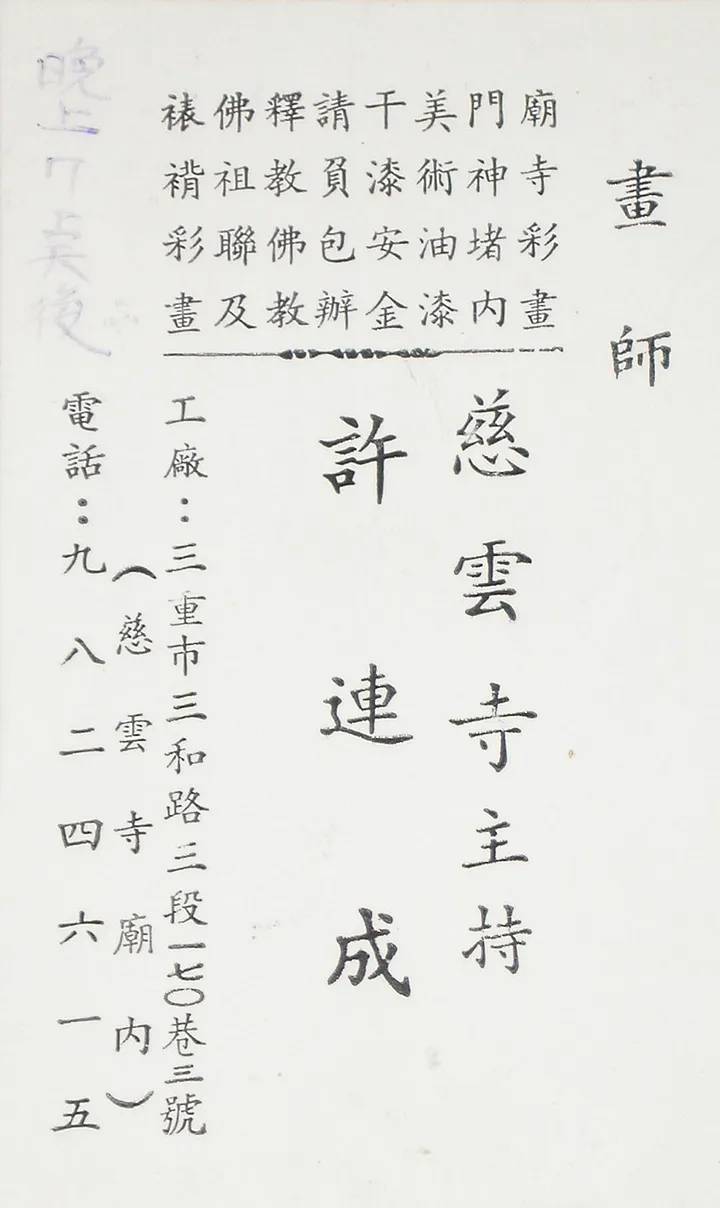 畫師
廟寺彩畫
門神堵內
美術油漆
干漆安金
請負包辦
釋教佛教
佛祖聯及
裱褙彩畫
慈雲寺主持
許連成
工廠：三重市三和路三段一七〇巷三號
（慈雲寺廟內）
電話：九八二四六一五
晚上7點後